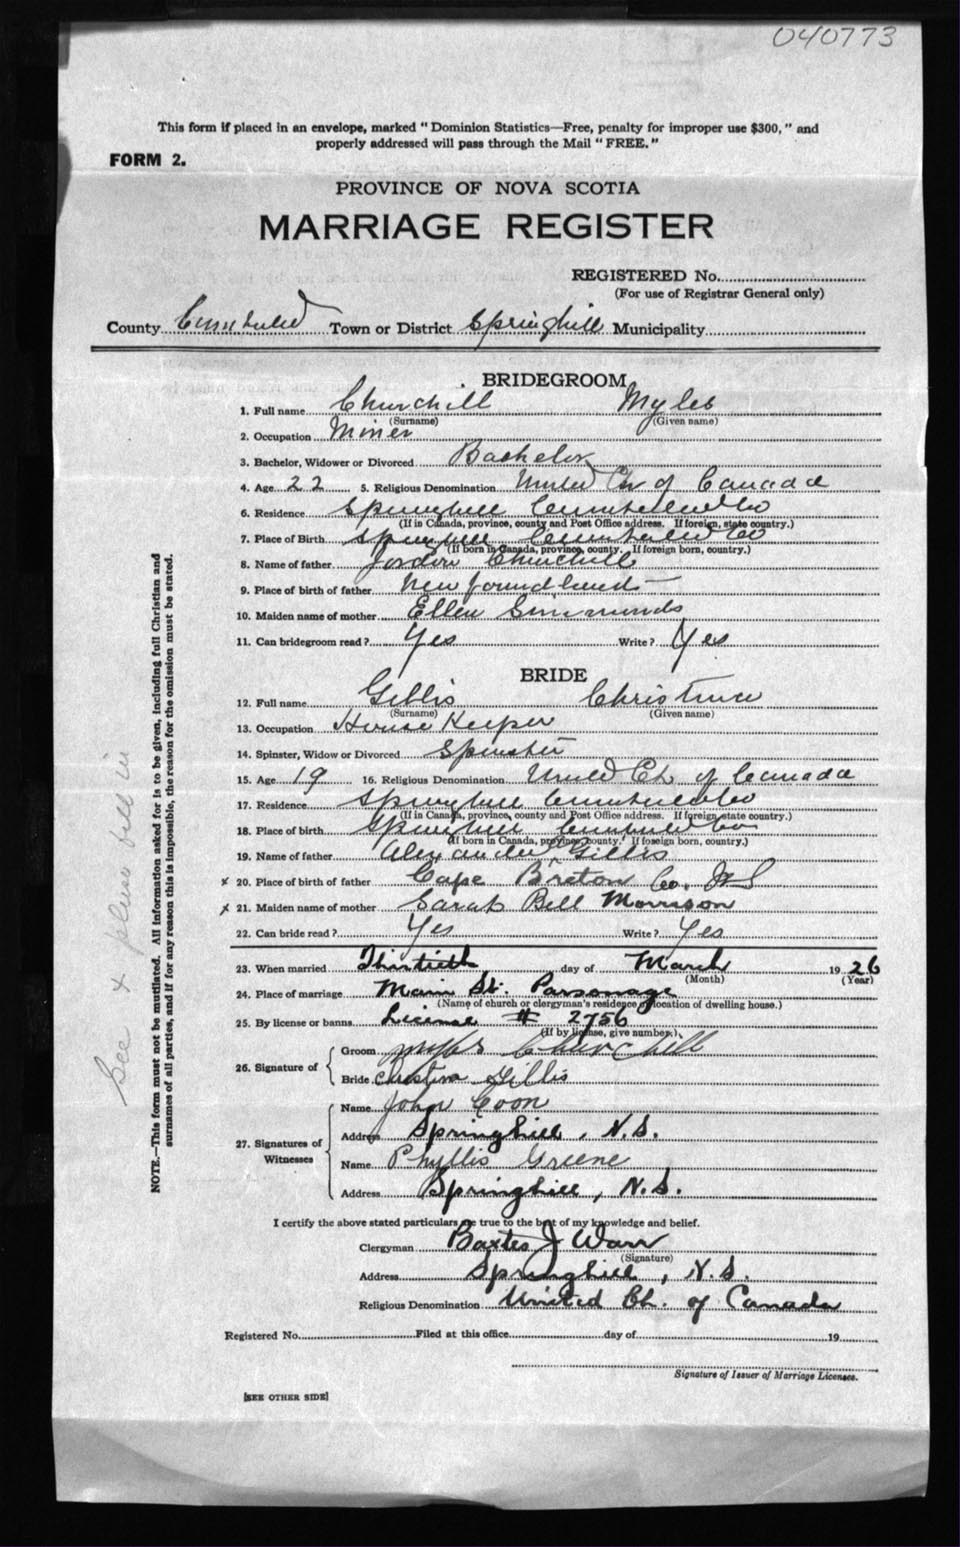 040773
This form if placed in an envelope, marked "Dominion Statistics—Free, penalty for improper use $300," and
properly addressed will pass through the Mail "FREE."
FORM 2.
PROVINCE OF NOVA SCOTIA
MARRIAGE REGISTER
REGISTERED No.
(For use of Registrar General only)
County Town or District Springhill Municipality
BRIDEGROOM
1. Full name Churchill Myles
(Surname) (Given name)
2. Occupation Miner
3. Bachelor, Widower or Divorced Bachelor
4. Age 22 5. Religious Denomination United Ch of Canada
6. Residence Springhill Cumberland Co
(If in Canada, province, county and Post Office address. If foreign, state country.)
7. Place of Birth Springhill Cumberland Co
(If born in Canada, province, county. If foreign born, country.)
8. Name of father Jordon Churchill
9. Place of birth of father New foundland
10. Maiden name of mother Ellen Simmonds
11. Can bridegroom read? Yes Write? Yes
BRIDE
12. Full name Gillis Christina
(Surname) (Given name)
13. Occupation House Keeper
14. Spinster, Widow or Divorced Spinster
15. Age 19 16. Religious Denomination United Ch of Canada
17. Residence Springhill Cumberland Co
(If in Canada, province, county and Post Office address. If foreign, state country.)
18. Place of birth Springhill Cumberland Co
(If born in Canada, province, county. If foreign born, country.)
19. Name of father Alexander Gillis
x 20. Place of birth of father Cape Breton Co. N S
x 21. Maiden name of mother Sarah Bell Morrison
22. Can bride read? Yes Write? Yes
23. When married Thirtieth day of March 1926
(Month) (Year)
24. Place of marriage Main St. Parsonage
(Name of church or clergyman's residence or location of dwelling house.)
25. By license or banns License # 2756
(If by license, give number.)
26. Signature of Groom Myles Churchill
Bride Christina Gillis
27. Signatures of Witnesses Name John Coon
Address Springhill, N.S.
Name Phyllis Greene
Address Springhill, N.S.
I certify the above stated particulars are true to the best of my knowledge and belief.
Clergyman Baxter J Warr
(Signature)
Address Springhill, N.S.
Religious Denomination United Ch. of Canada
Registered No. Filed at this office day of 19
Signature of Issuer of Marriage Licenses.
[SEE OTHER SIDE]
NOTE.—This form must not be mutilated. All information asked for is to be given, including full Christian and
surnames of all parties, and if for any reason this is impossible, the reason for the omission must be stated.
See x please fill in